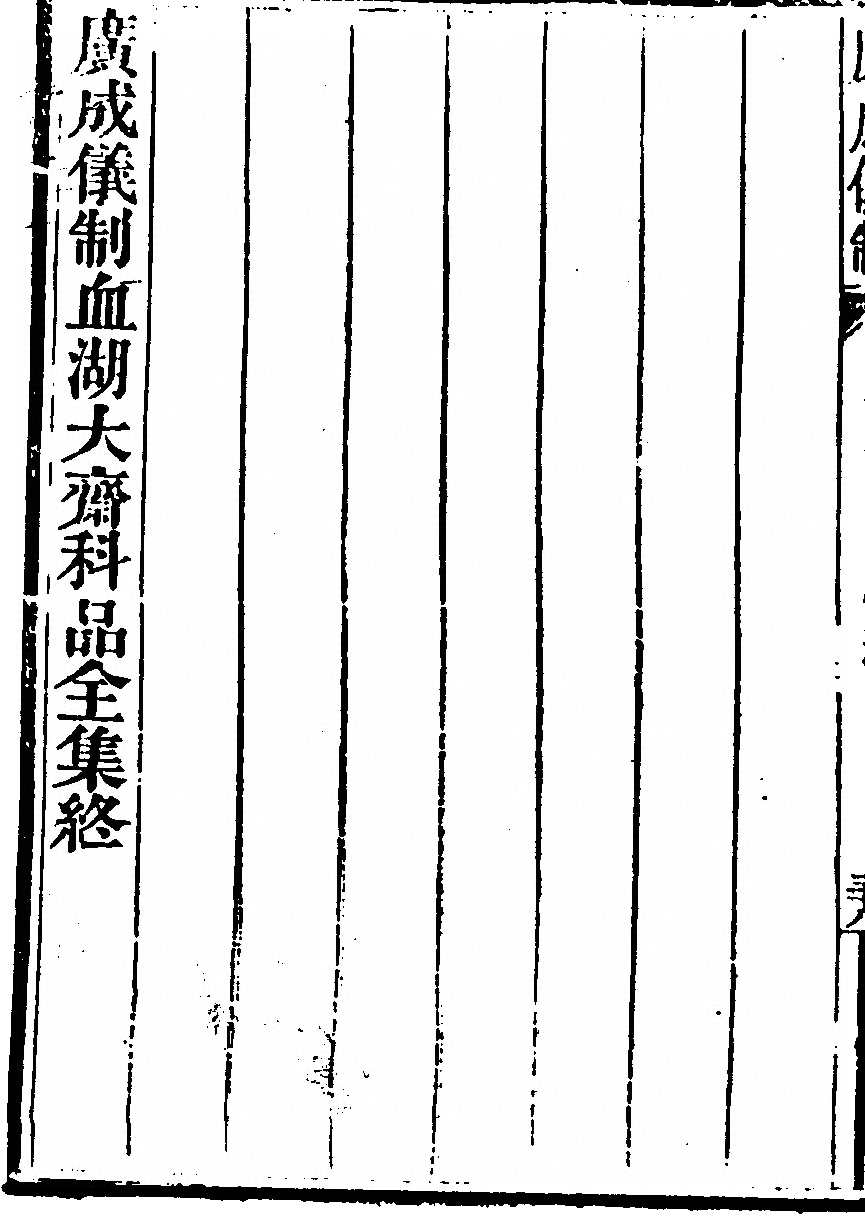 廣成儀制血湖大齋科品全集終